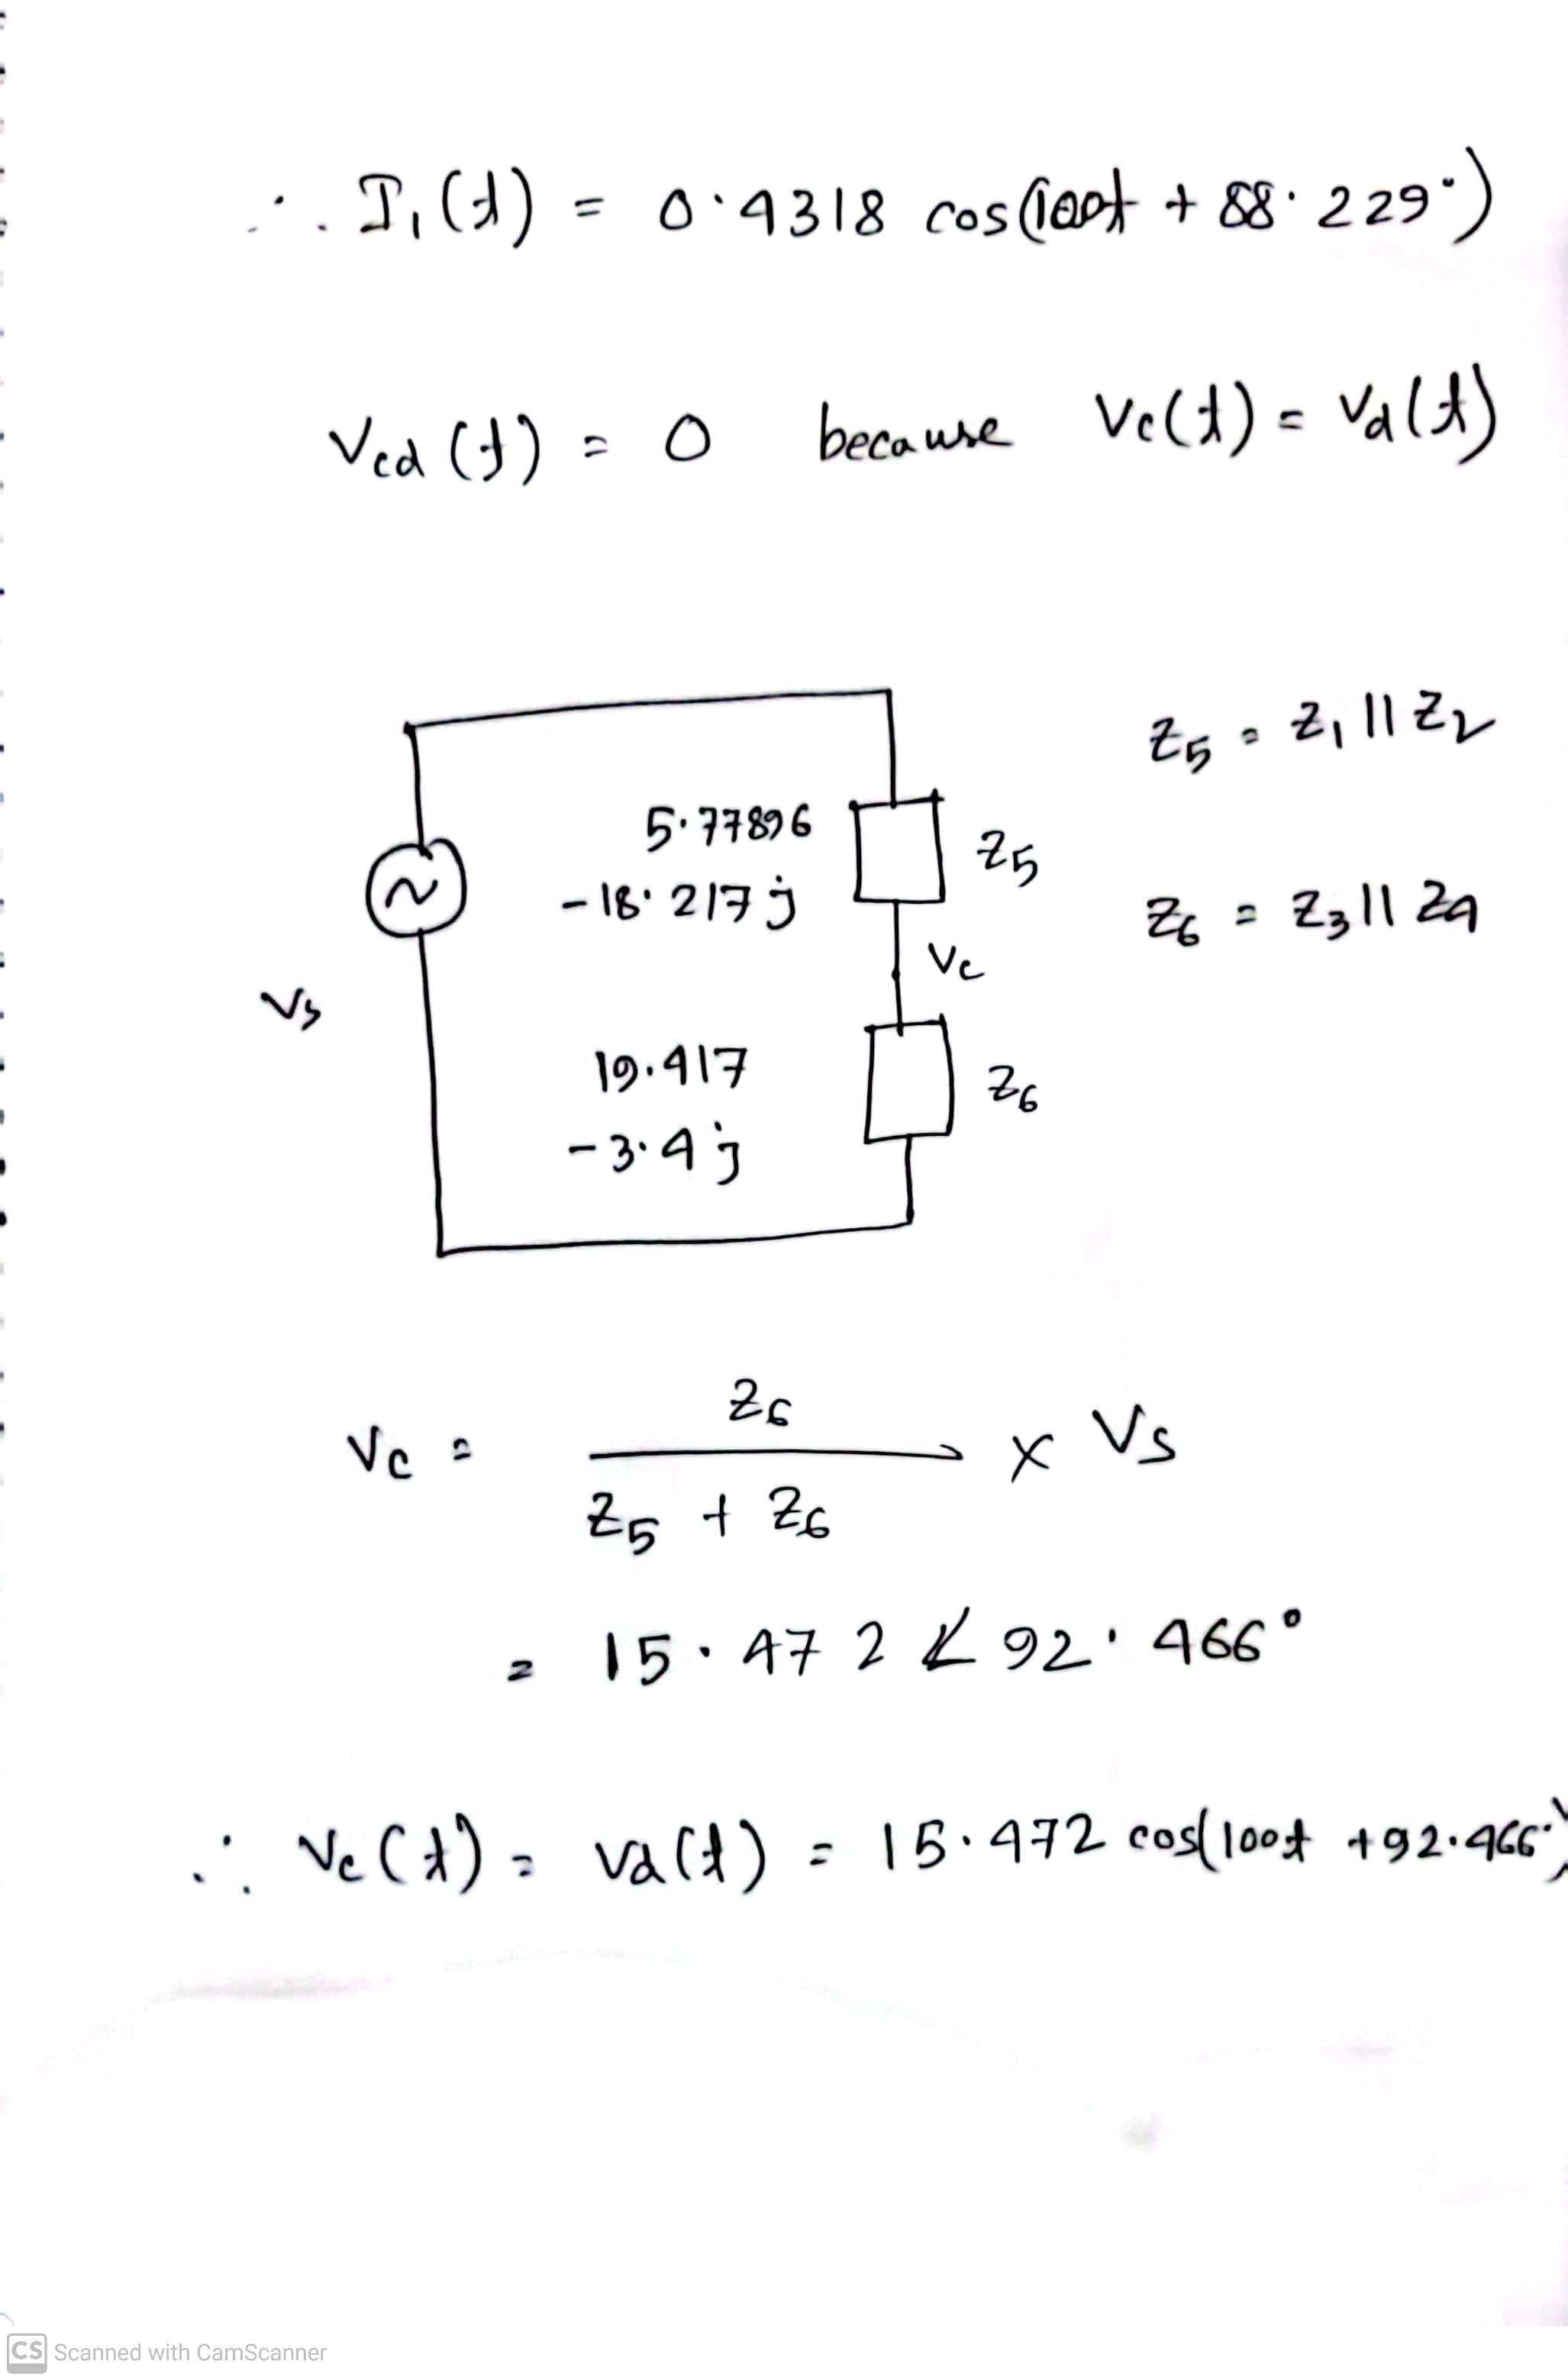 ∴ I₁(t) = 0.4318 cos(100t + 88.229°)
Vcd(t) = 0 because Vc(t) = Vd(t)
Z₅ = Z₁ || Z₂
5.77896
Z₅
-18.217j
Z₆ = Z₃ || Z₄
Vc
Vs
19.417
Z₆
-3.4j
Vc = Z₆ / (Z₅ + Z₆) × Vs
= 15.472 ∠ 92.466°
∴ Vc(t) = Vd(t) = 15.472 cos(100t + 92.466°)
CS Scanned with CamScanner